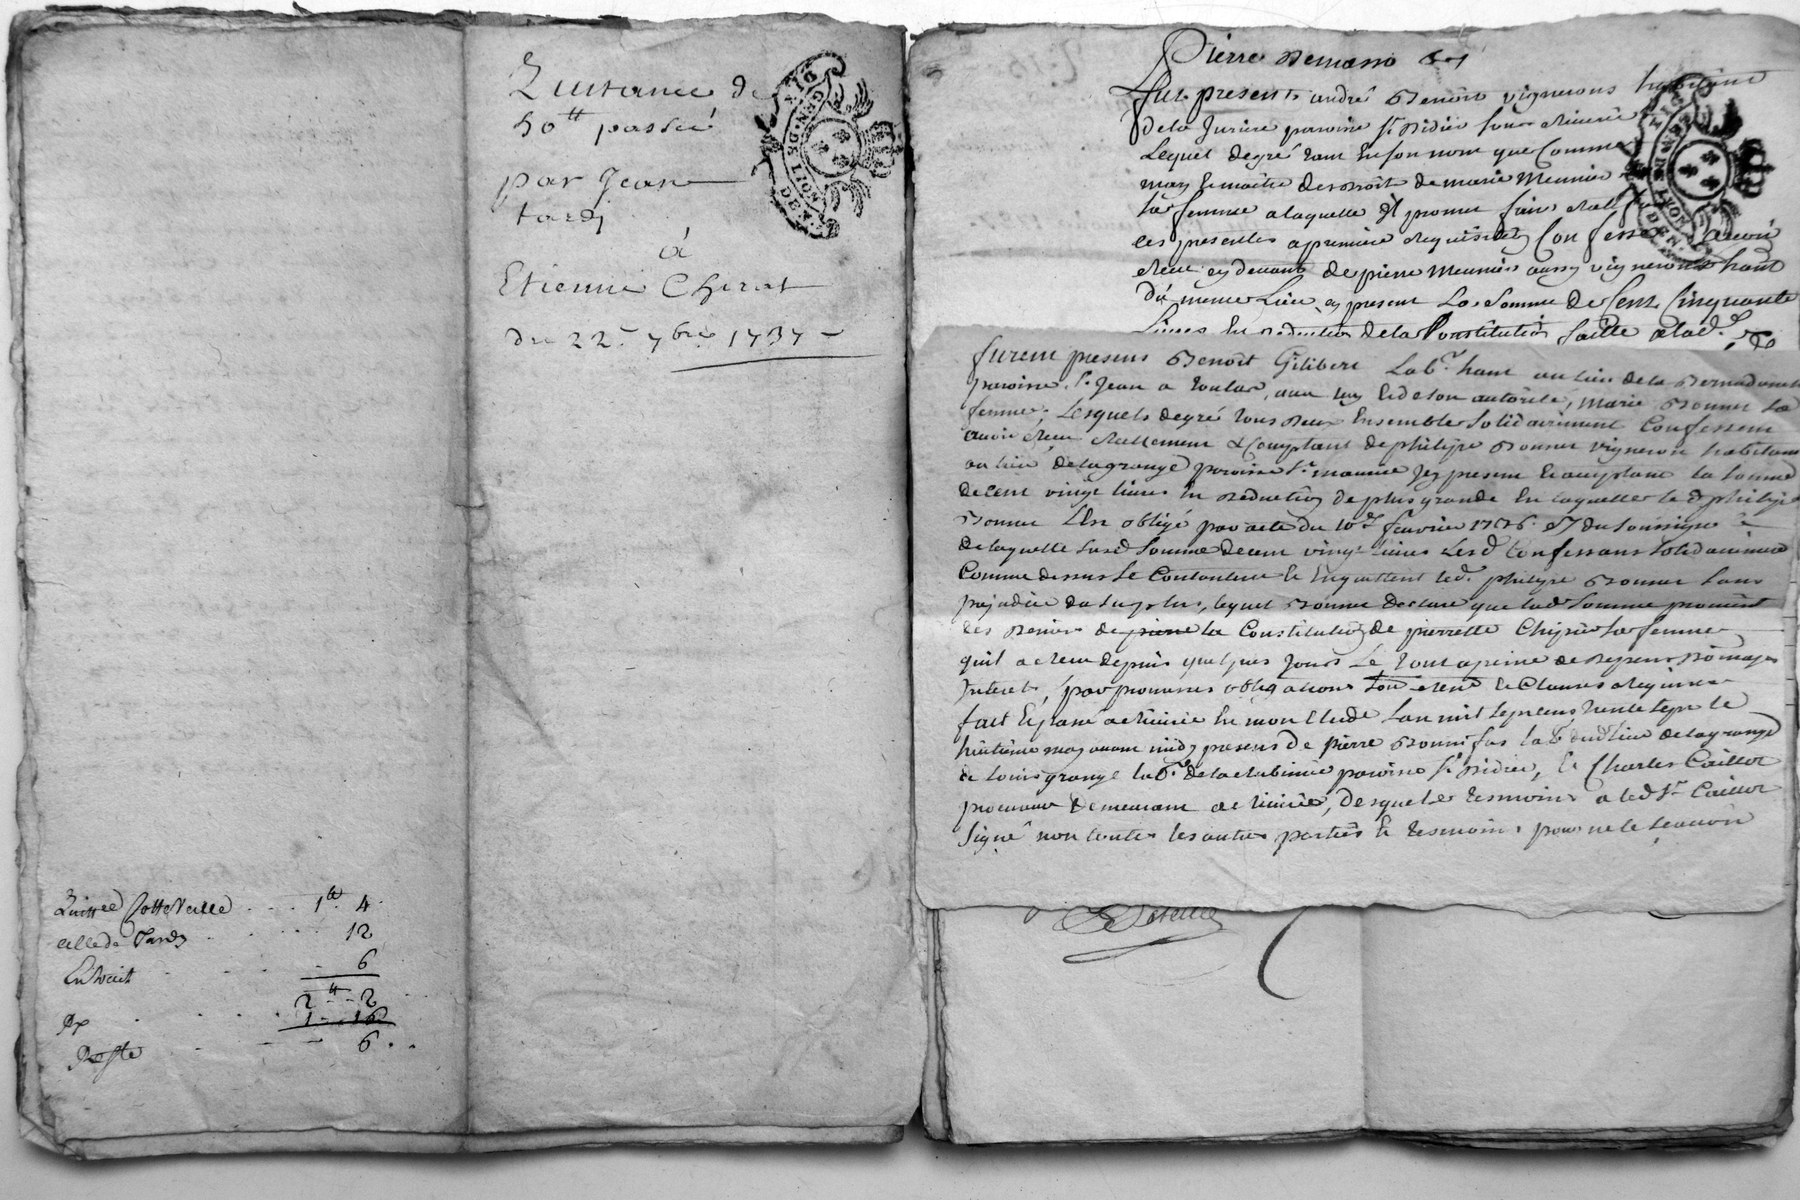 Quittance de
50tt passée
par Jean
tardi
à
Etienne Cherat
du 22e 7bre 1737
Quittée Cotte Vielle 1tt 4
celle de Tardy 12
Extrait 6
2tt 2
1 16
Reste 6
DIX DEN.
GEN. DE LYON
Pierre
fut present andré Benoit vignerons habitant
de la paroisse St Didier sous
Lequel de gré tant en son nom que Comme
mary et maître des droits de marie Meunier
sa femme a laquelle il promet faire
les presentes a premiere requisition Confesse avoir
receu cy devant de pierre meunier aussy vigneron habt
du meme Lieu cy present La Somme de Cent Cinquante
Livres En deduction de la Constitution faitte a lad.
GEN. DE LYON
furent presens Benoît Gilibert Labr. habt au lieu de la
paroisse St Jean a toulas, aux luy et de son autorité, Marie Bonnet sa
femme, Lesquels de gré tous deux Ensemble Solidairement Confessent
avoir receu reellement & Comptant de philipe Bonnet vigneron habitant
au lieu de la grange paroisse St maurice Jcy present et acceptant la somme
de cent vingt livres En deduction de plus grande En laquelle led. philipe
Bonnet s'est obligé par acte du 10e fevrier du soussigné
de laquelle susd. Somme de cent vingt livres Lesd. Confessans solidairement
Comme dessus se Contentent et En quittent led. philipe Bonnet sans
prejudice du surplus, lequel Bonnet declare que lad. Somme provient
des deniers de la Constitution de pierrette Chipier sa femme
quil a receu depuis quelques Jours Le tout a peine de depens Domages
Interets, par promesses obligations Soum. renon. et Clauses requises
fait Et passé a riverie En mon Etude Lan mil sept cens trente sept le
huitième may avant midy presens Sr pierre Bonnifas lab. dud. lieu de la grange
et Louis grange lab. de la paroisse St Didier, et Charles Caillot
procureur Demeurant a riverie, desquels tesmoins a led. Sr Caillot
Signé non toutes les autres parties et tesmoins pour ne le sçavoir